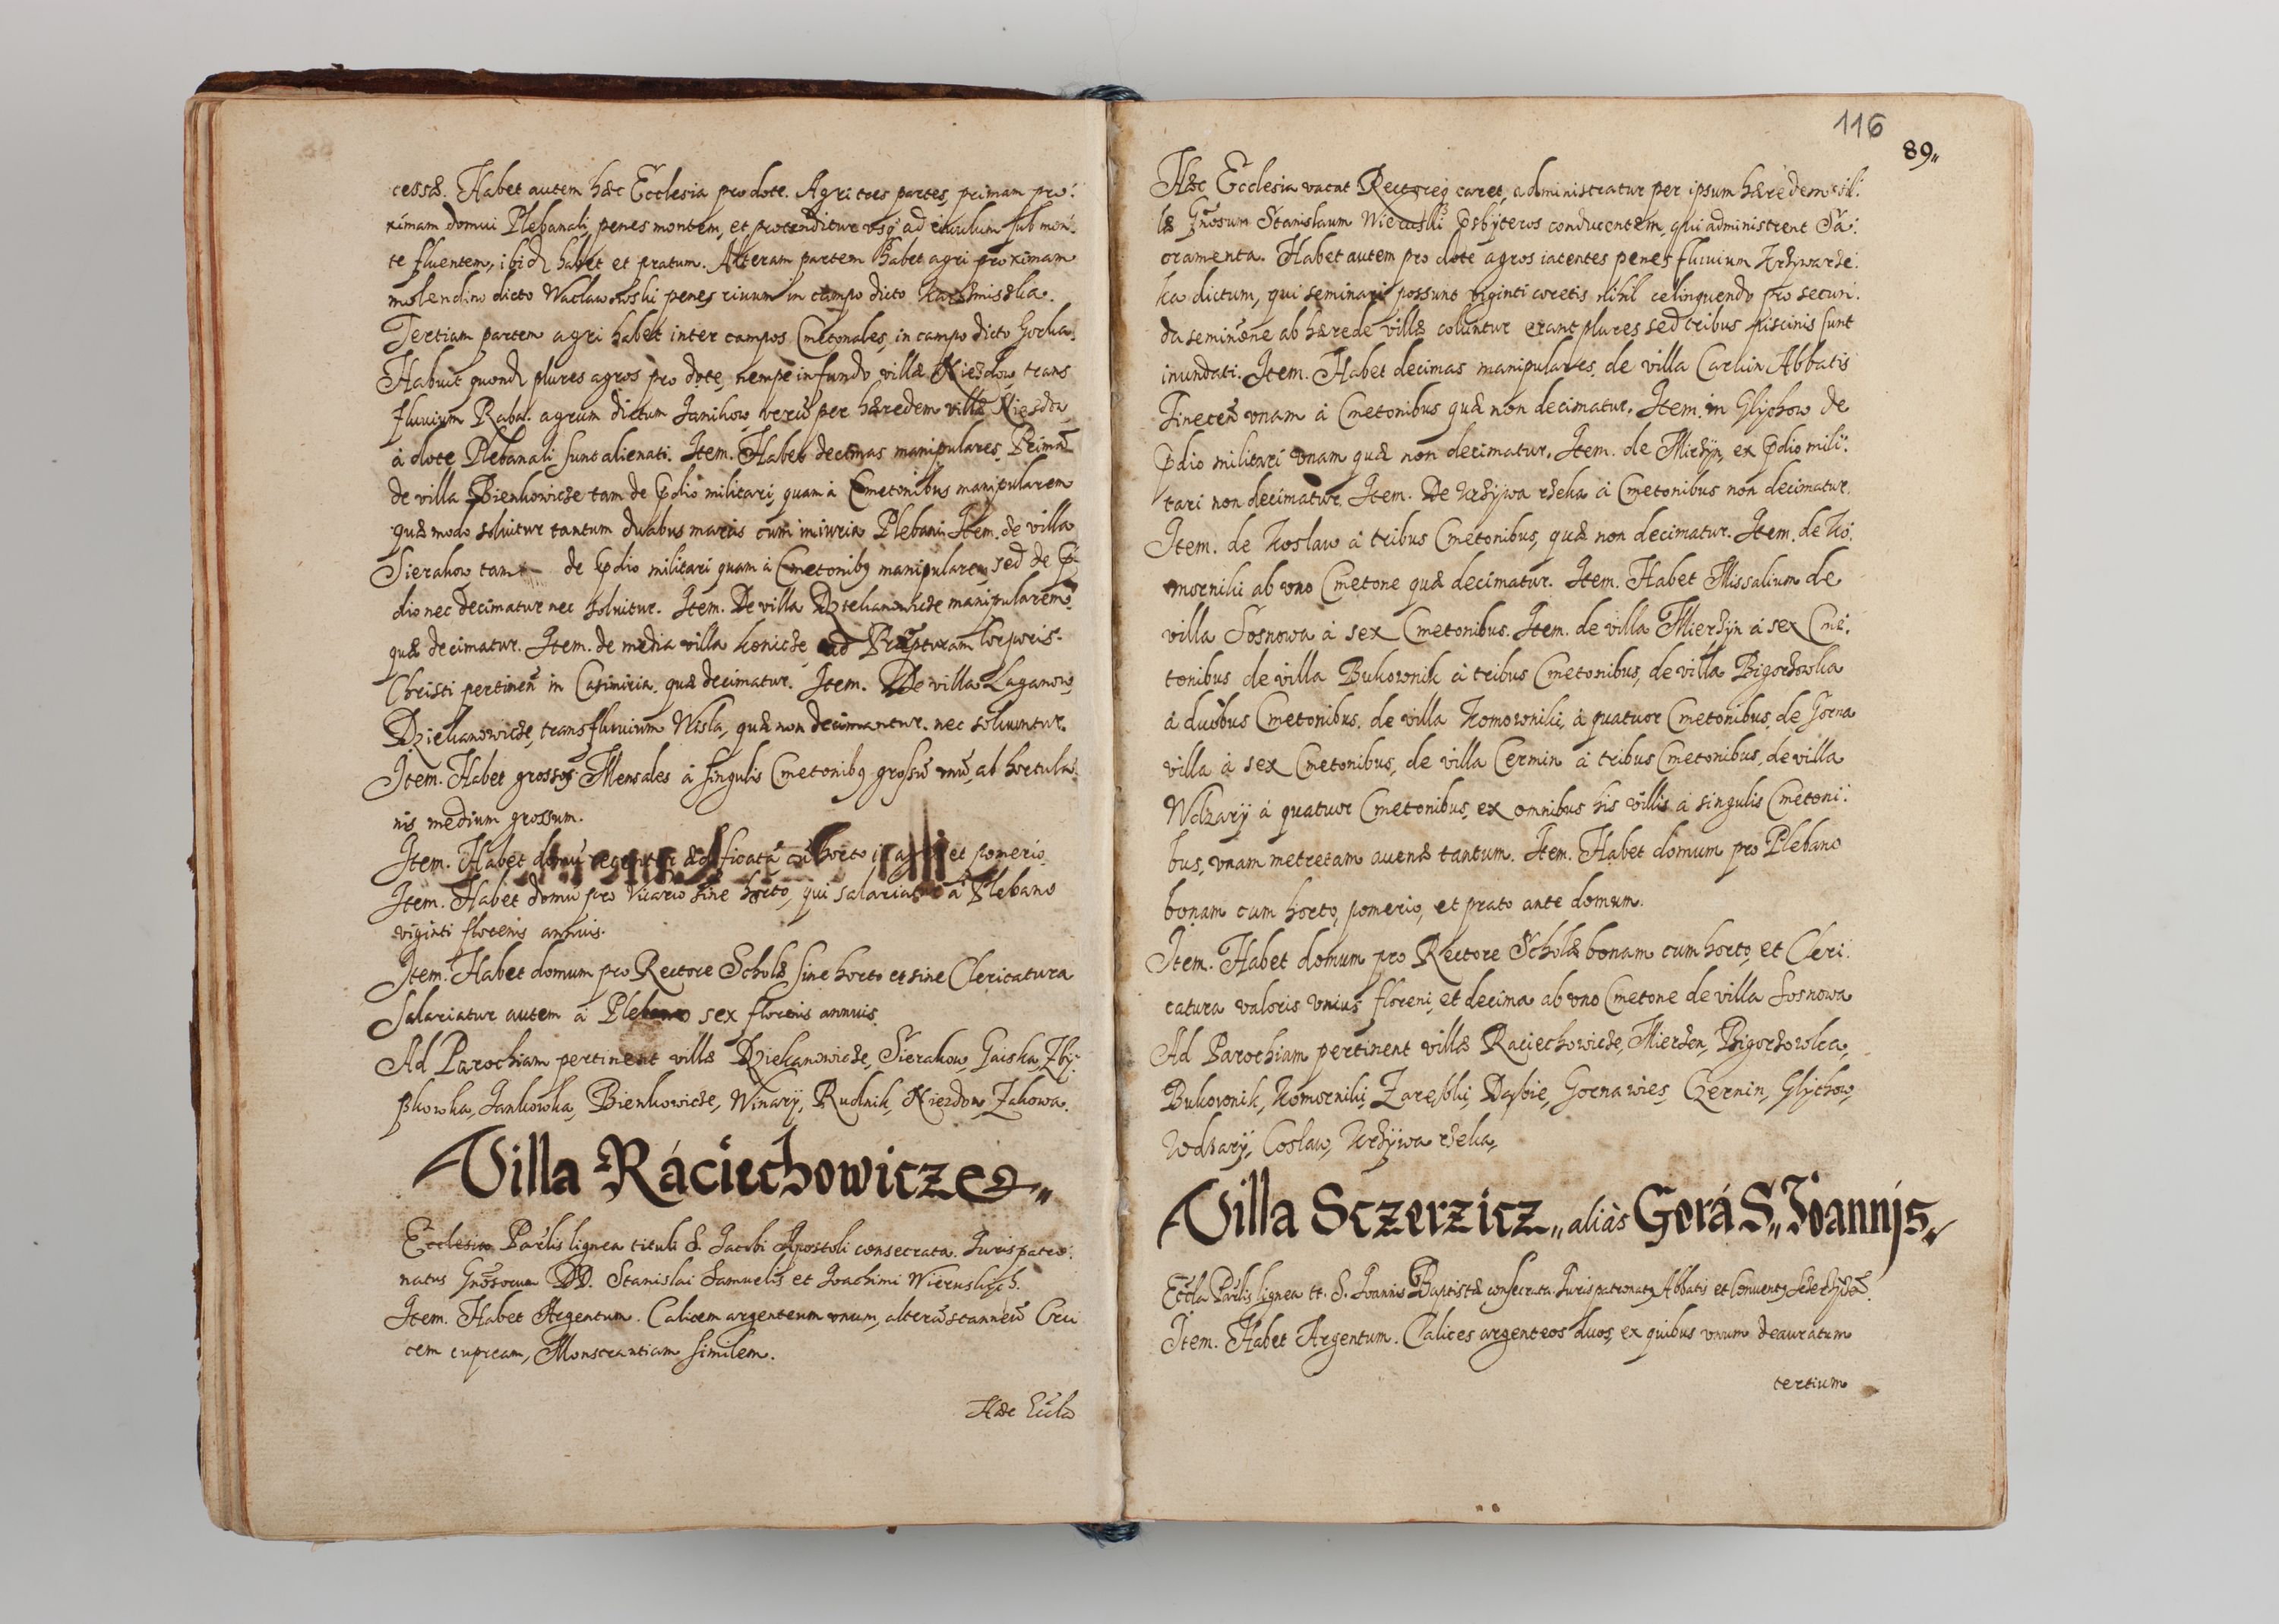 cessæ. Habet autem hæc Ecclesia pro dote. Agri tres partes, primam pro:
ximam domui Plebanali, penes montem, et protenditur vsq ad riuulum sub mon:
te fluentem, ibid habet et pratum. Alteram partem habet agri proximam
molendino dicto Waclawowski penes riuum in campo dicto
Tertiam partem agri habet inter campos Cmetonales, in campo dicto Gorka.
Habuit quond plures agros pro dote, nempe in fundo villæ Niezdow, trans
fluuium Raba: agrum dictum Janikow, verũ per hæredem villæ Niesdow
à dote Plebanali sunt alienati. Item. Habet decimas manipulares. Primã
de villa Bienkowicze tam de Pdio militari, quam à Cmetonibus manipularem
quæ modo soluitur tantum duabus marcis cum iniuria Plebani Item. de villa
Sierakow tam de Pdio militari quam à Cmetonibq manipularem, sed de P:
dio nec decimatur nec soluitur. Item. De villa Dziekanowicze manipularem
quæ decimatur. Item. de media villa konicze ad Præpturam Corporis
Christi pertineñ in Casimiria. quæ decimatur. Item. De villa Laganow,
Dziekanowicze, trans fluuium Wisla, quæ non decimantur. nec soluuntur.
Item. Habet grossos Mensales à singulis Cmetonibq grossũ vnũ, ab hortula:
nis medium grossum.
Item. Habet domũ recenter ædificatã cũ horto et pomerio
Item. Habet domũ pro Vicario sine horto, qui salariatur à Plebano
viginti florenis annuis.
Item. Habet domum pro Rectore Scholæ sine horto et sine Clericatura
Salariatur autem à Plebano sex florenis annuis.
Ad Parochiam pertinent villæ Dziekanowicze, Sierakow, Gaiska, Zbÿ:
skowka, Jankowka, Bienkowicze, Winarÿ, Rudnik, Niezdow, Zakowa.
Villa Ráciechowicze
Ecclesia Parlis lignea tituli S. Jacobi Apostoli consecrata. Juris patro:
natus Gnosorum DD. Stanislai Samuelis et Joachimi Wieruskich.
Item. Habet Argentum. Calicem argenteum vnum, alterũ stanneũ Cru
cem cupream, Monstrantiam similem.
Hæc Eccla
116
89„
Hæc Ecclesia vacat Rectoreq caret, administratur per ipsum hæredem vil:
læ Gnosum Stanislaum Wieruski Psbÿteros conducentem, qui administrent Sa:
cramenta. Habet autem pro dote agros iacentes penes fluuium Krzÿwarze:
ka dictum, qui seminari possunt viginti coretis nihil relinquendo pro secun:
da seminõne ab hærede villæ coluntur erant plures sed tribus piscinis sunt
inundati. Item. Habet decimas manipulares, de villa Carluin Abbatis
Tineceñ vnam à Cmetonibus quæ non decimatur. Item. in Glÿchow de
Pdio militari vnam quæ non decimatur. Item. de Mierzÿn, ex Pdio mili:
tari non decimatur. Item. De Krzÿwa rzeka à Cmetonibus non decimatur.
Item. de Koslaw à tribus Cmetonibus, quæ non decimatur. Item. de Ko:
mornili ab vno Cmetone quæ decimatur. Item. Habet Missalium de
villa Sosnowa à sex Cmetonibus. Item. de villa Mierzÿn à sex Cme:
tonibus de villa Bukownik à tribus Cmetonibus, de villa Bigorzowka
à duobus Cmetonibus. de villa Komowniki, à quatuor Cmetonibus, de Gorna
villa à sex Cmetonibus, de villa Cermin à tribus Cmetonibus, de villa
Wdzarÿ à quatuor Cmetonibus, ex omnibus his villis à singulis Cmetoni:
bus, vnam metretam auenæ tantum. Item. Habet domum pro Plebano
bonam cum horto, pomerio, et prato ante domum.
Item. Habet domum pro Rectore Scholæ bonam cum horto, et Cleri:
catura valoris vnius floreni, et decima ab vno Cmetone de villa Sosnowa
Ad Parochiam pertinent villæ Raciechowicze, Mierzen, Bigorzowka,
Bukownik, Komorniki, Zarębki, Dąbie, Gorna wies, Czernin, Glÿchow,
Wdzarÿ, Coslaw, Krzÿwa rzeka,
Villa Sczerzicz„ aliàs Gorá S„ Joannis
Eccla Parlis lignea tt. S. Joannis Baptistæ consecrata. Juris patronatq Abbatis et Conuentq
Item. Habet Argentum. Calices argenteos duos, ex quibus vnum deauratum
tertium